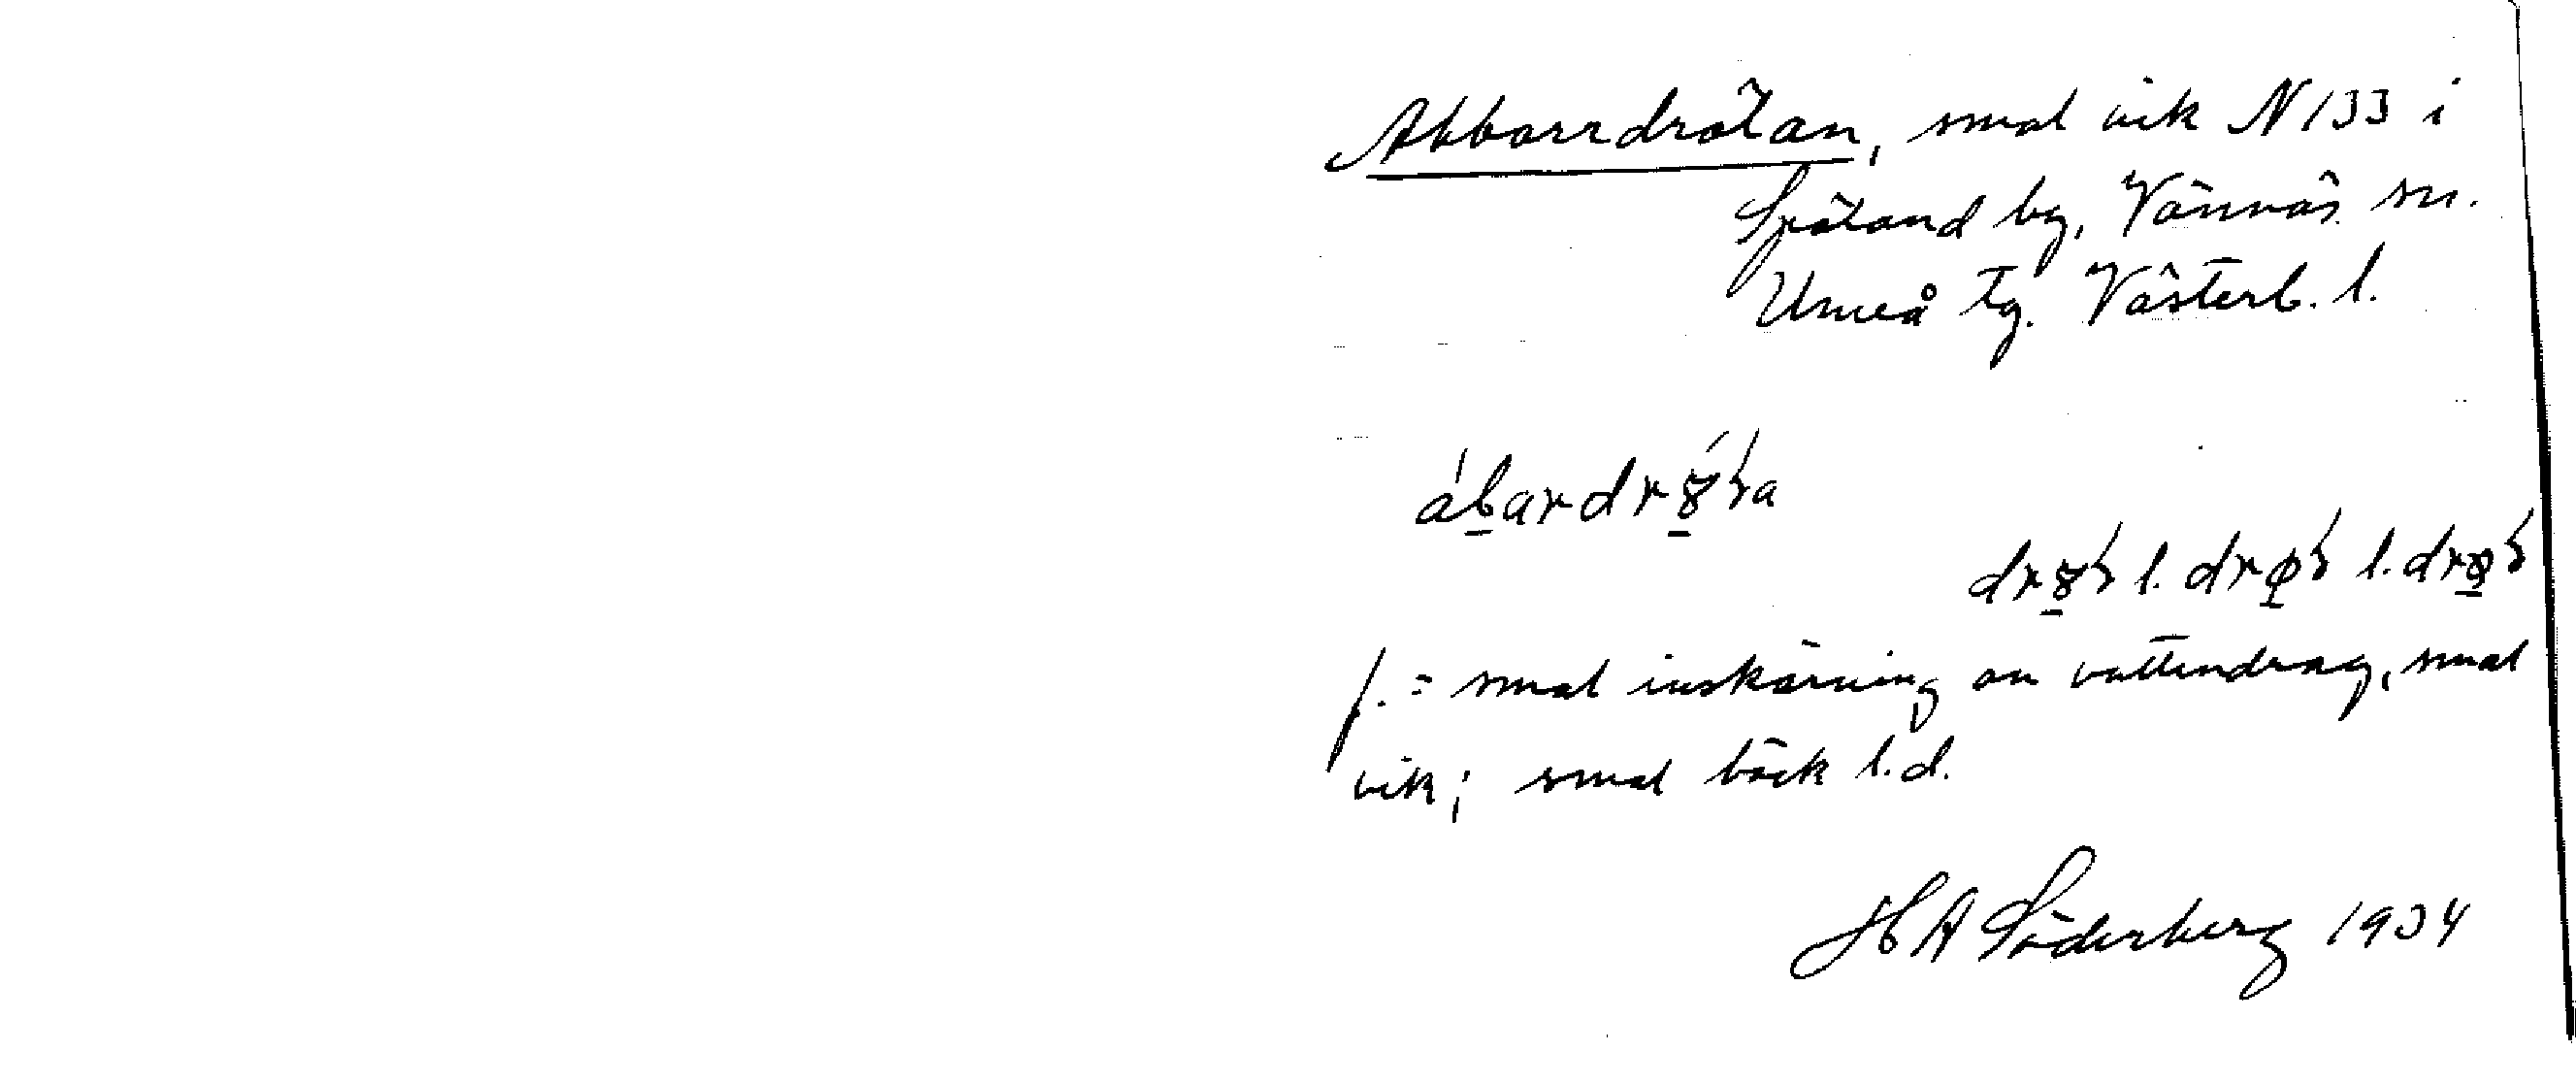 Abborrdrötan, smal vik N 133 i
Spöland by, Vännäs sn.
Umeå tg. Västerb. l.
l. l.
f. = smal inskärning av vattendrag, smal
vik; smal bäck l.d.
H A Söderberg 1934